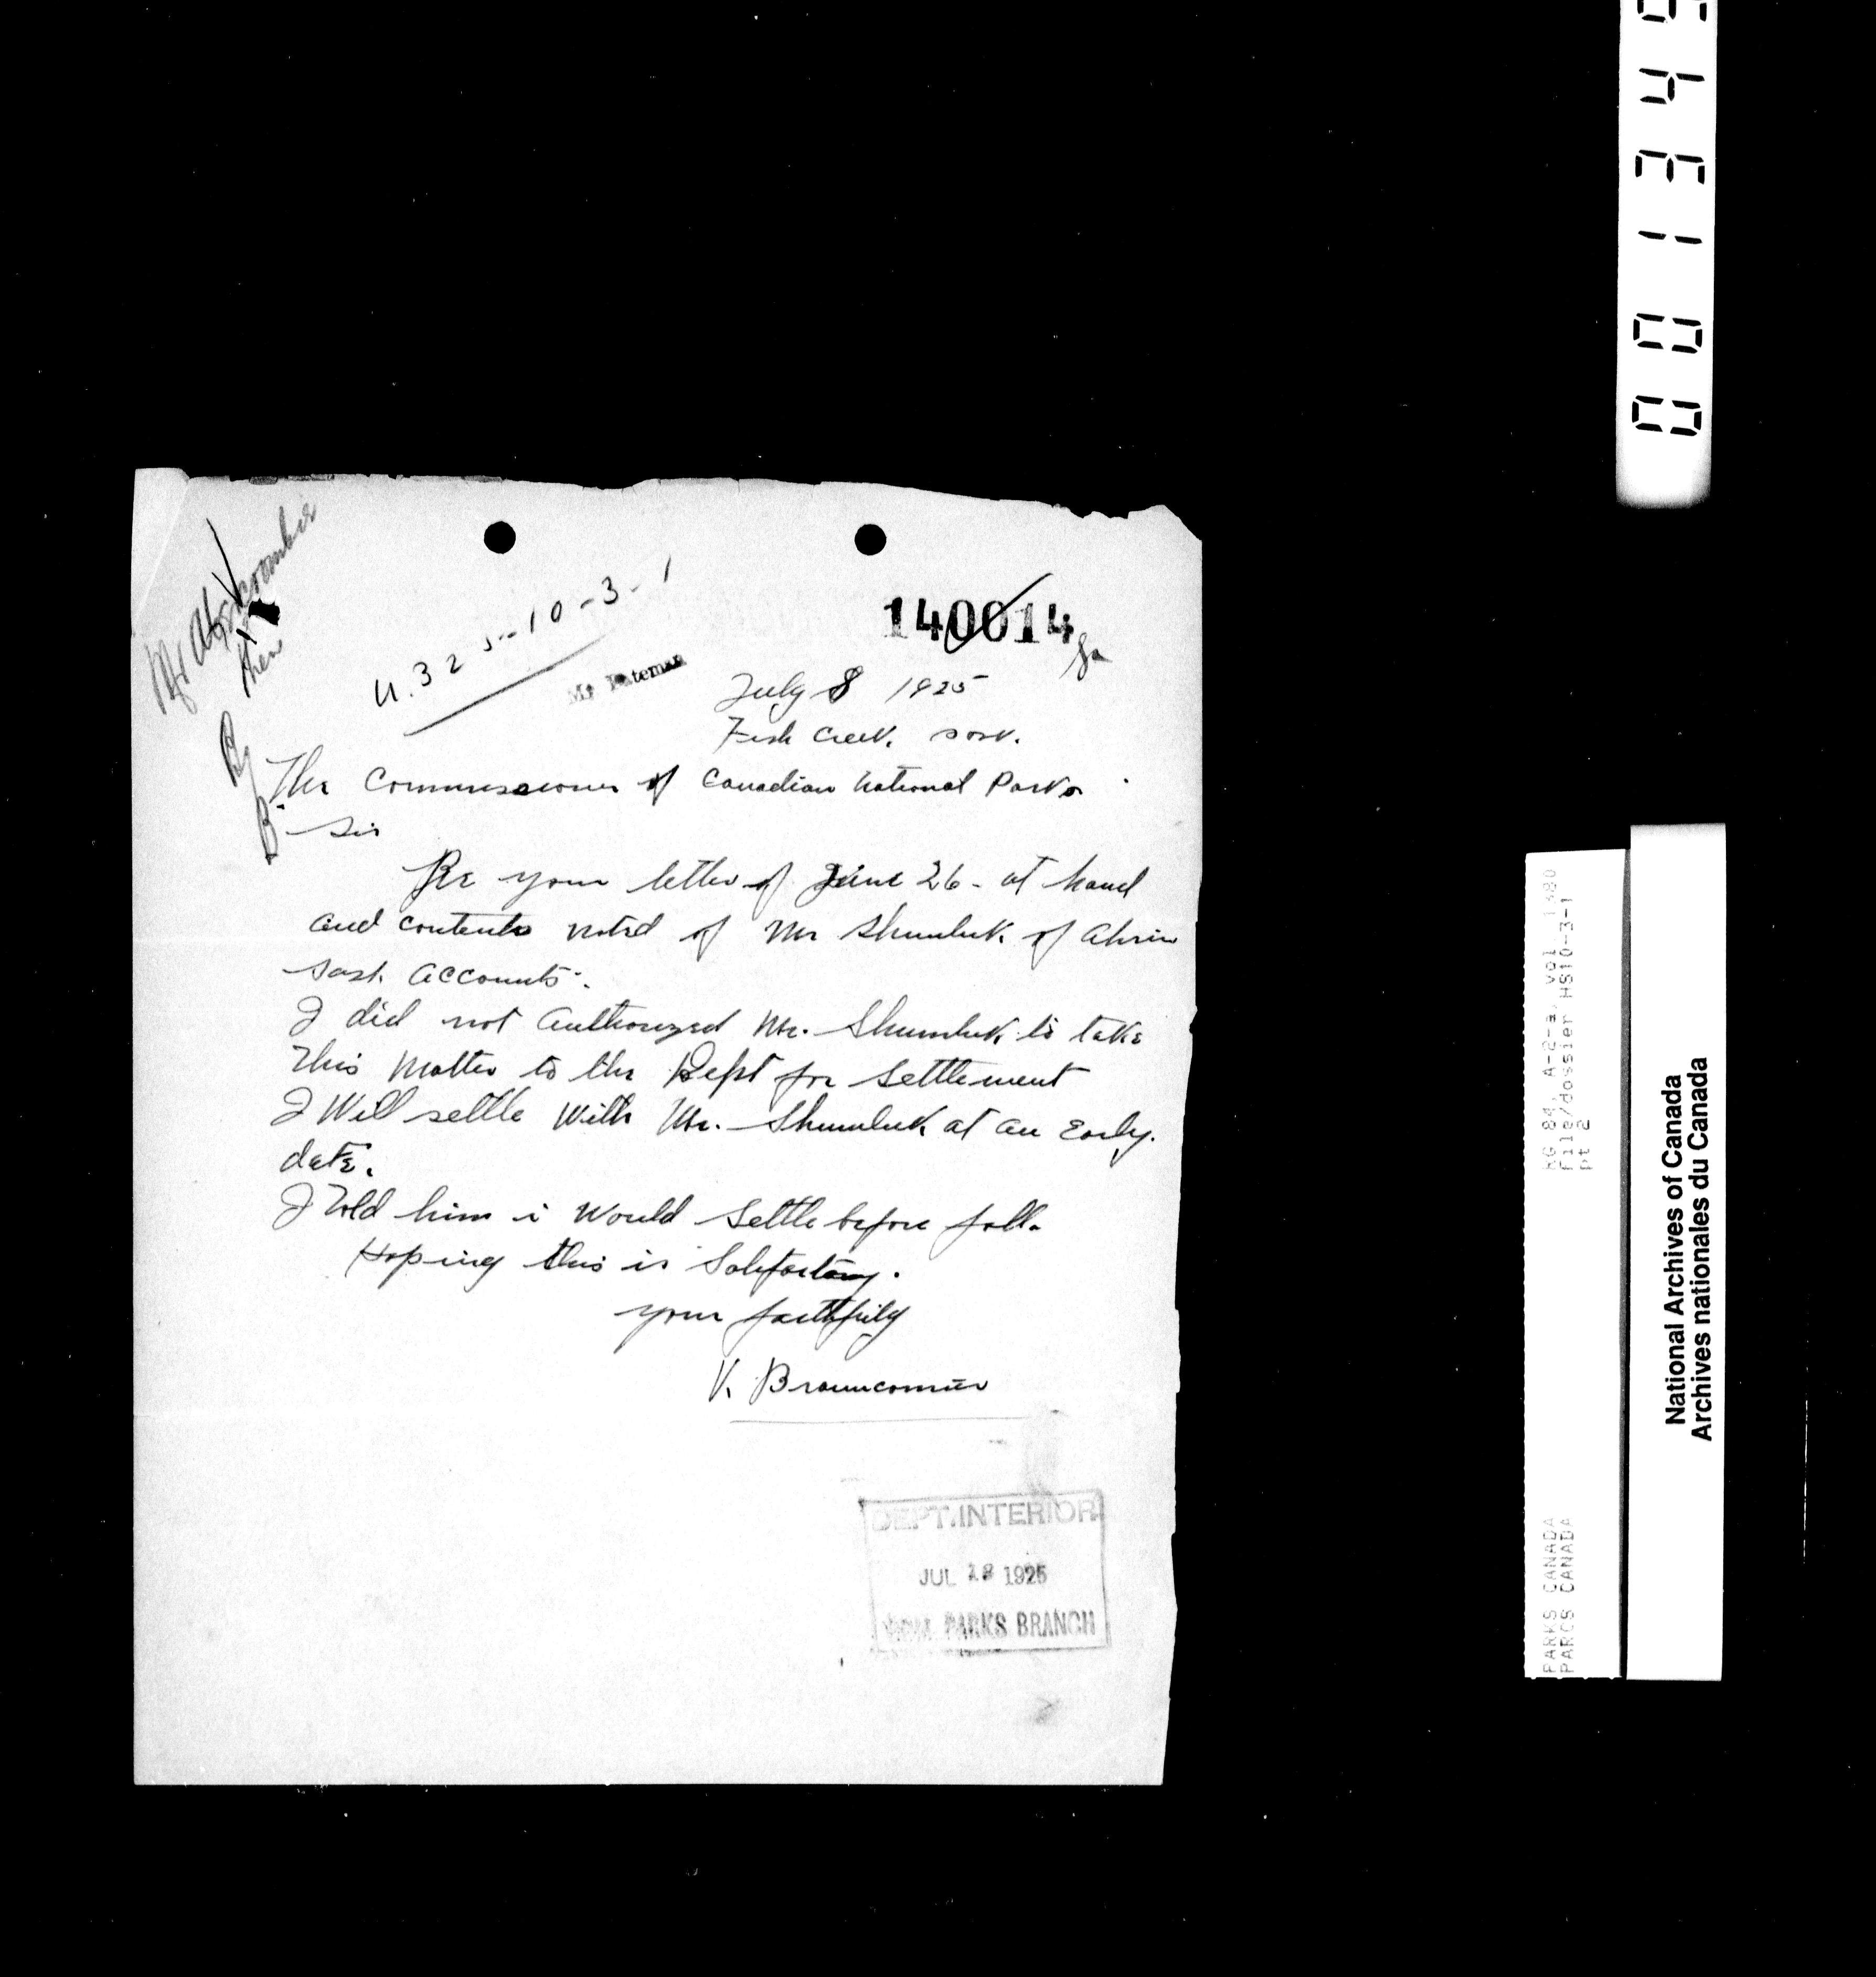 Mr Abercrombie
then
By
B.
U.325-10-3-1
140014
Mr Bateman
July 8 1925
Fish Creek. Sask.
The Commissioner of Canadian National Parks
Sir
Re your letter of June 26 - at hand
and contents noted of Mr Shumluk of Alvin
Sask. Accounts.
I did not Authorized Mr. Shumluk to take
This Matter to the Dept for Settlement
I Will settle With Mr. Shumluk at an Early.
date.
I Told him i Would Settle before fall.
Hoping this is
your faithfully
V.
DEPT. INTERIOR
JUL 1925
PARKS BRANCH
PARKS CANADA
PARCS CANADA
RG 84, A-2-a, vol 1380
file/dossier HS10-3-1
pt 2
National Archives of Canada
Archives nationales du Canada